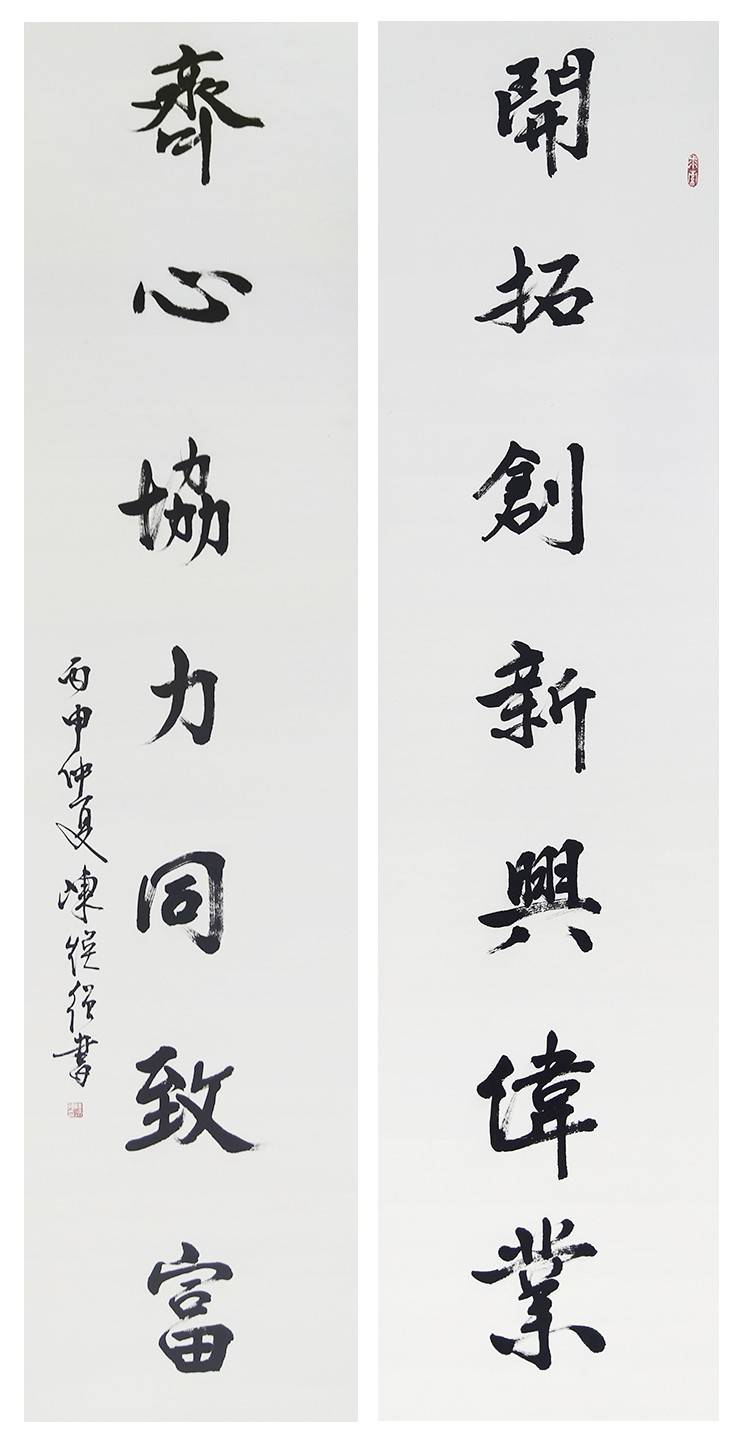 開拓創新興偉業
齊心協力同致富
丙申仲夏陳 書